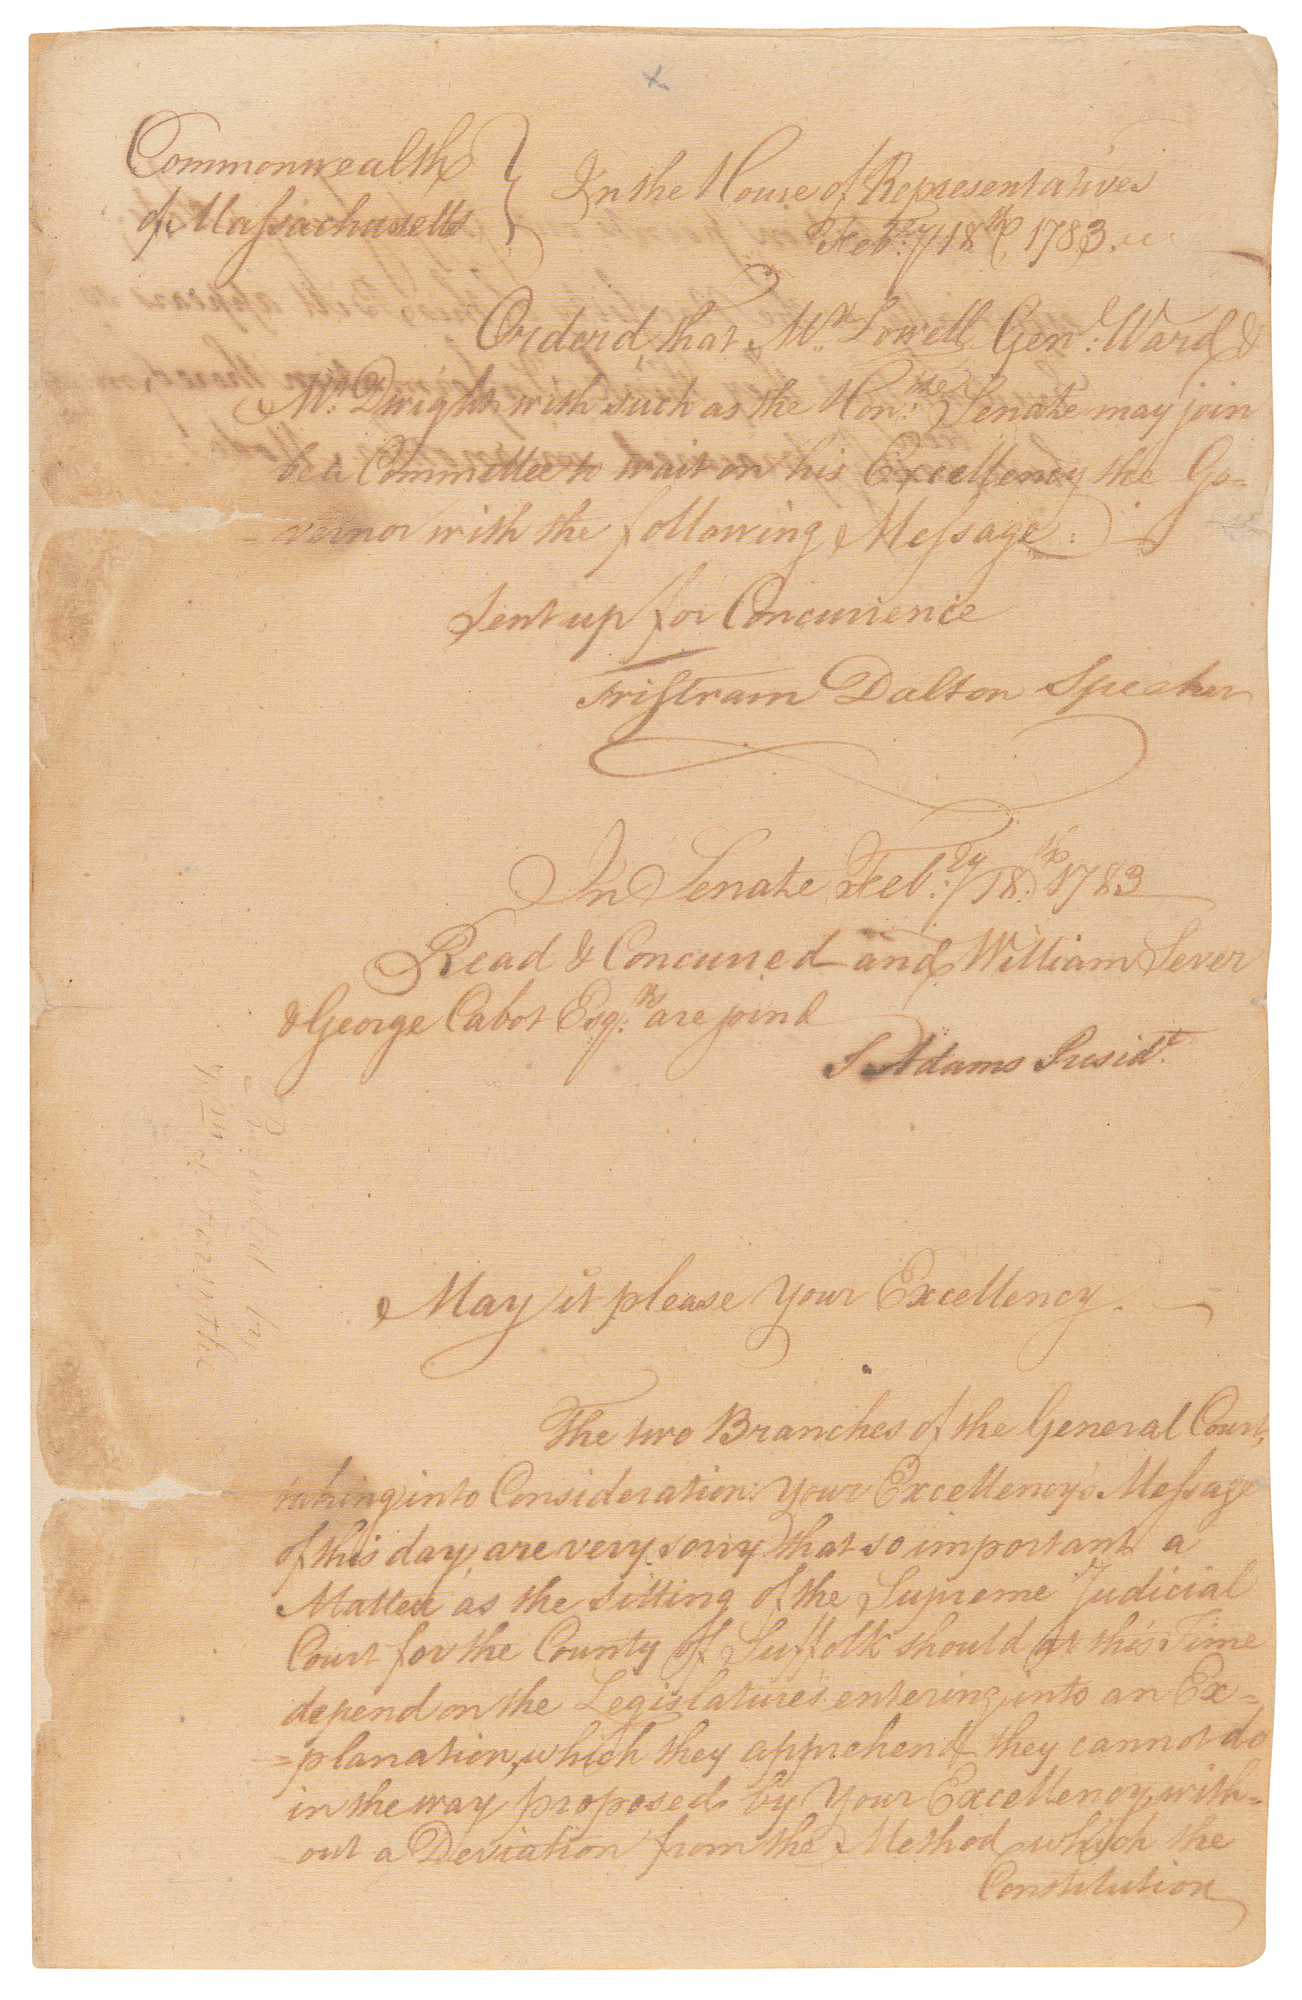 Commonwealth
of Massachusetts } In the House of Representatives
Feb.ry 18th 1783.
Orderd, that Mr. Lowell Gen.l Ward &
Mr. Dwight with such as the Hon.ble Senate may join
be a Committee to wait on his Excellency the Go=
=vernor with the following Message:
Sent up for Concurrence
Tristram Dalton Speaker
In Senate Feb.ry 18.th 1783
Read & Concurred and William Sever
& George Cabot Esq.rs are joind
S Adams Presid.t
Presented by
Wm
May it please Your Excellency.
The two Branches of the General Court,
taking into Consideration Your Excellency's Message
of this day, are very sorry that so important a
Matter as the sitting of the Supreme Judicial
Court for the County of Suffolk should at this Time
depend on the Legislature's entering into an Ex=
=planation, which they apprehend they cannot do
in the way proposed by Your Excellency, with=
out a Deviation from the Method which the
Constitution